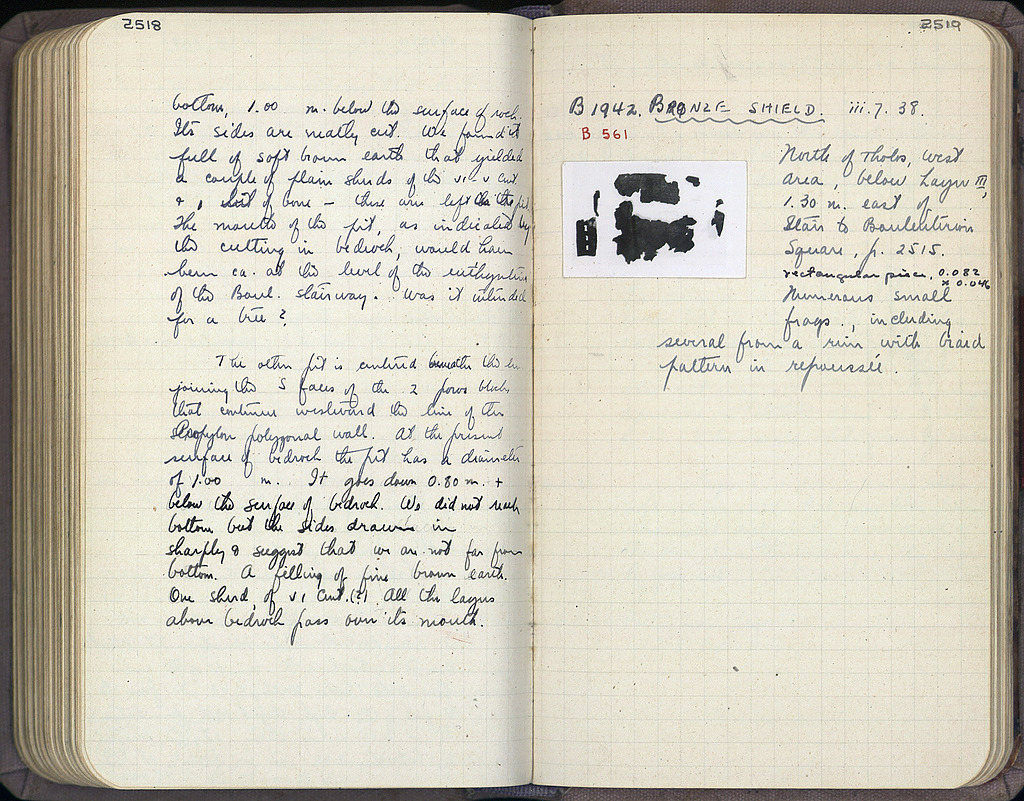 2518
bottom, 1.00 m. below the surface of rock.
Its sides are neatly cut. We found it
full of soft brown earth that yielded
a couple of plain sherds of the vi-v cent.
& of bone – these are left in the pit.
The mouth of the pit, as indicated by
the cutting in bedrock, would have
been ca. at the level of the euthynteria
of the Boul. stairway. Was it intended
for a tree?
The other pit is centered beneath the
joining the S faces of the 2 poros blocks
that continue westward the line of the
Propylon polygonal wall. At the present
surface of bedrock the pit has a diameter
of 1.00 m. It goes down 0.80 m. +
below the surface of bedrock. We did not reach
bottom but the sides draw in
sharply & suggest that we are not far from
bottom. A filling of fine brown earth.
One sherd, of vi cent. (?) All the layers
above bedrock pass over its mouth.
2519
B 1942. BRONZE SHIELD. iii.7.38.
B 561
North of Tholos, west
area, below Layer III,
1.30 m. east of
Stairs to Bouleuterion
Square, p. 2515.
rectangular piece, 0.082
x 0.046
Numerous small
frags., including
several from a rim with braid
pattern in repoussée.